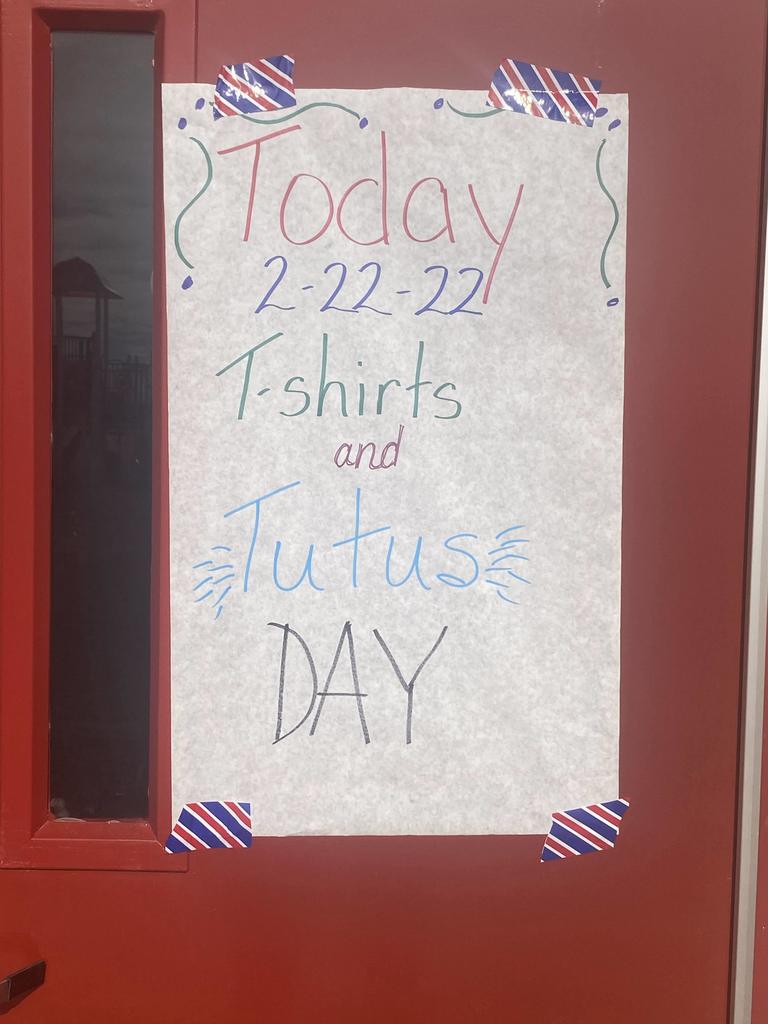 Today
2-22-22
T-shirts
and
Tutus
DAY